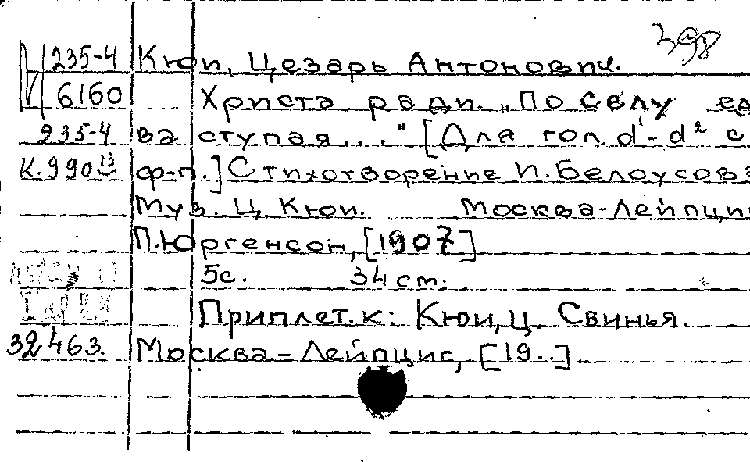 398
235-4 Кюи, Цезарь Антонович.
6160 Христа ради. "По селу ед
235-4 ва ступая..." [Для гол. d¹-d² с
К.990 13 ф-п.] Стихотворение И. Белоусова
Муз. Ц. Кюи. Москва-Лейпциг
П. Юргенсон, [1907]
5с. 34 см.
Приплет. к: Кюи, Ц. Свинья.
32463. Москва-Лейпциг, [19..]